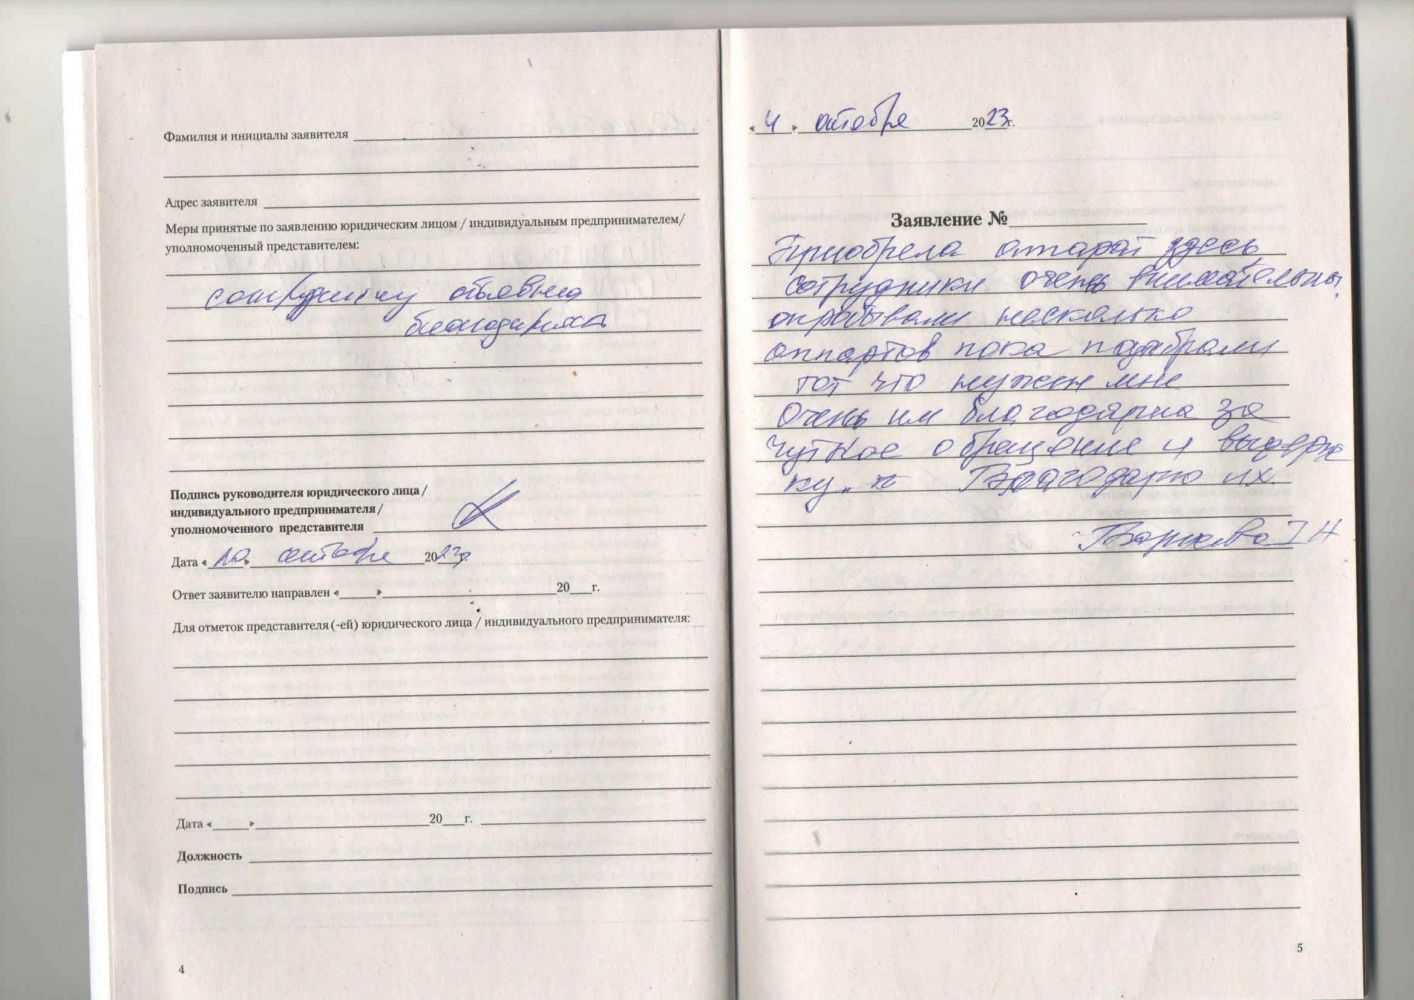 Фамилия и инициалы заявителя
Адрес заявителя
Меры принятые по заявлению юридическим лицом / индивидуальным предпринимателем/
уполномоченный представителем:
сотруднику объявлена
благодарность
Подпись руководителя юридического лица/
индивидуального предпринимателя/
уполномоченного представителя
Дата « 20 » октября 2023г.
Ответ заявителю направлен «____»____20___г.
Для отметок представителя (-ей) юридического лица / индивидуального предпринимателя:
Дата «____»____20___г.
Должность
Подпись
4
« 4 » октября 2023г.
Заявление №
Приобрела аппарат здесь
сотрудники очень внимательны,
опробывали несколько
аппартов пока подобрали
тот что нужен мне
Очень им благодарна за
чуткое обращение и выдерж
ку. Благодарю их.
5